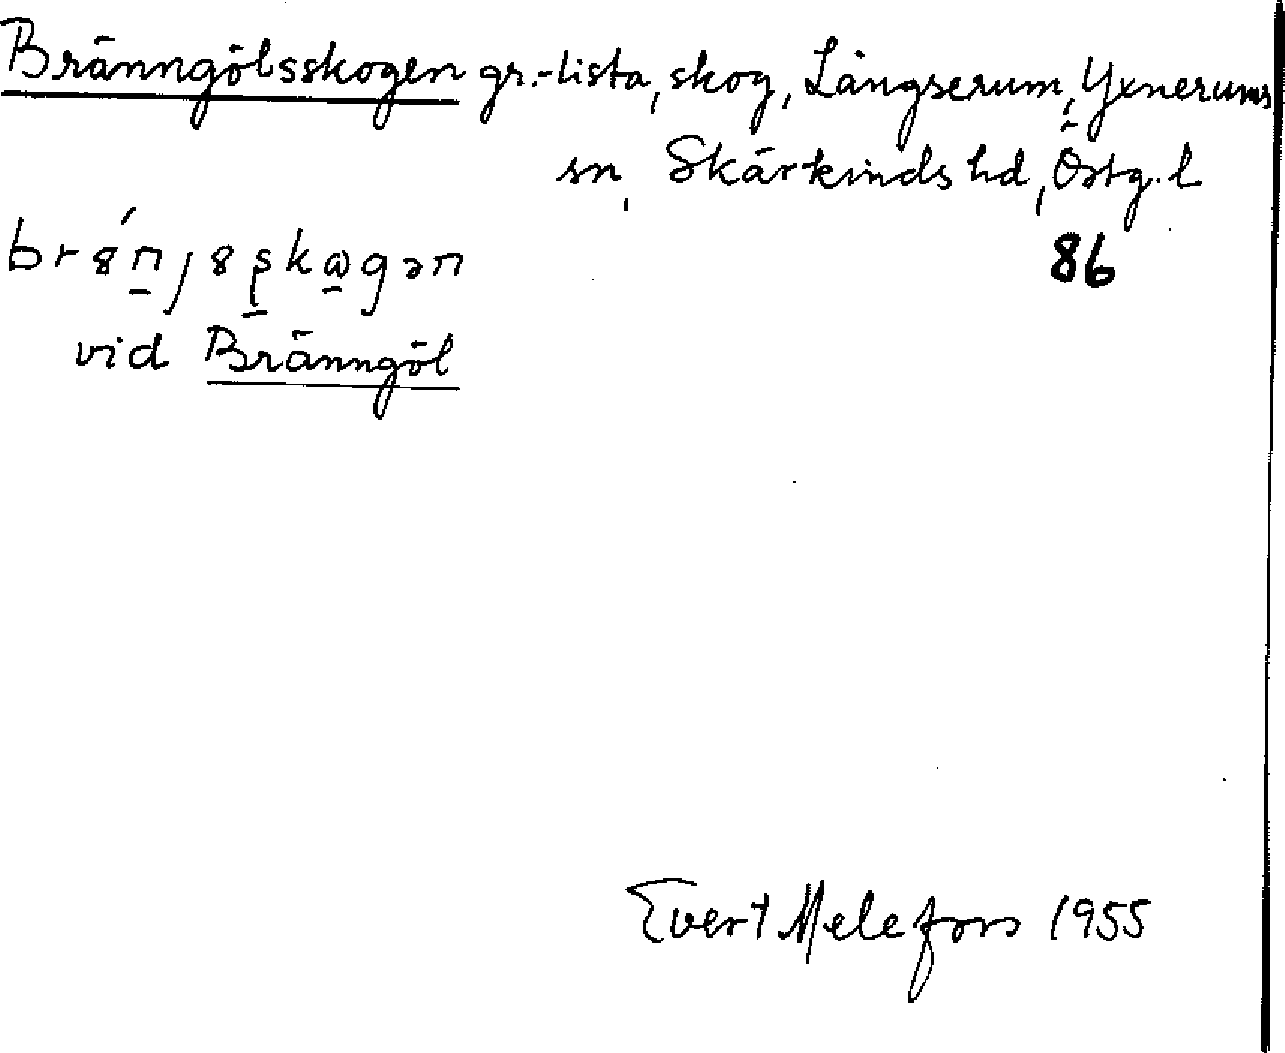 Bränngölsskogen gr.-lista, skog, Långserum, Yxnerums
sn, Skärkinds hd, Östg. l
86
vid Bränngöl
Evert Melefors 1955